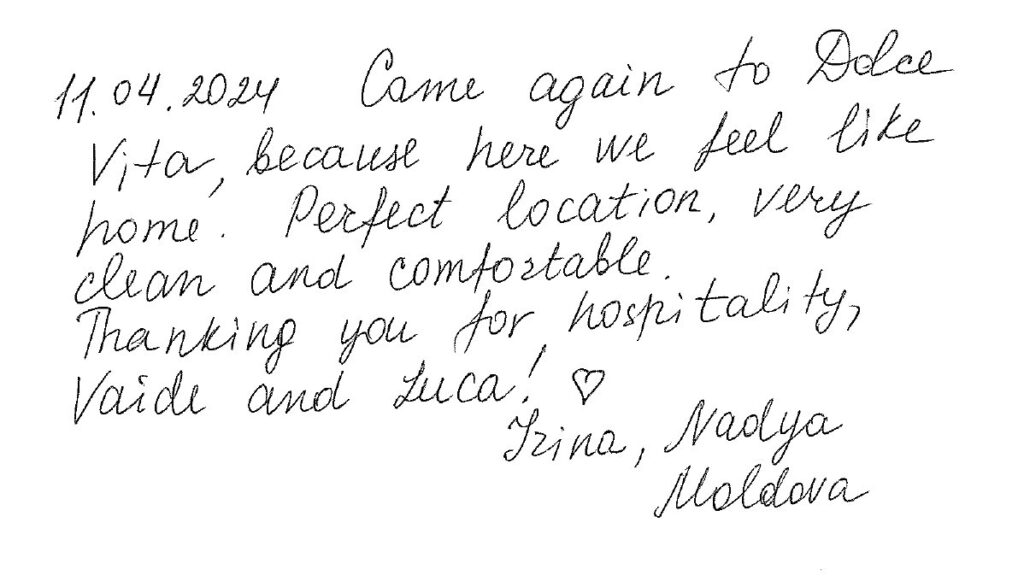 11.04.2024 Came again to Dolce
Vita, because here we feel like
home. Perfect location, very
clean and comfortable.
Thanking you for hospitality,
Vaide and Luca! ♡
Irina, Nadya
Moldova